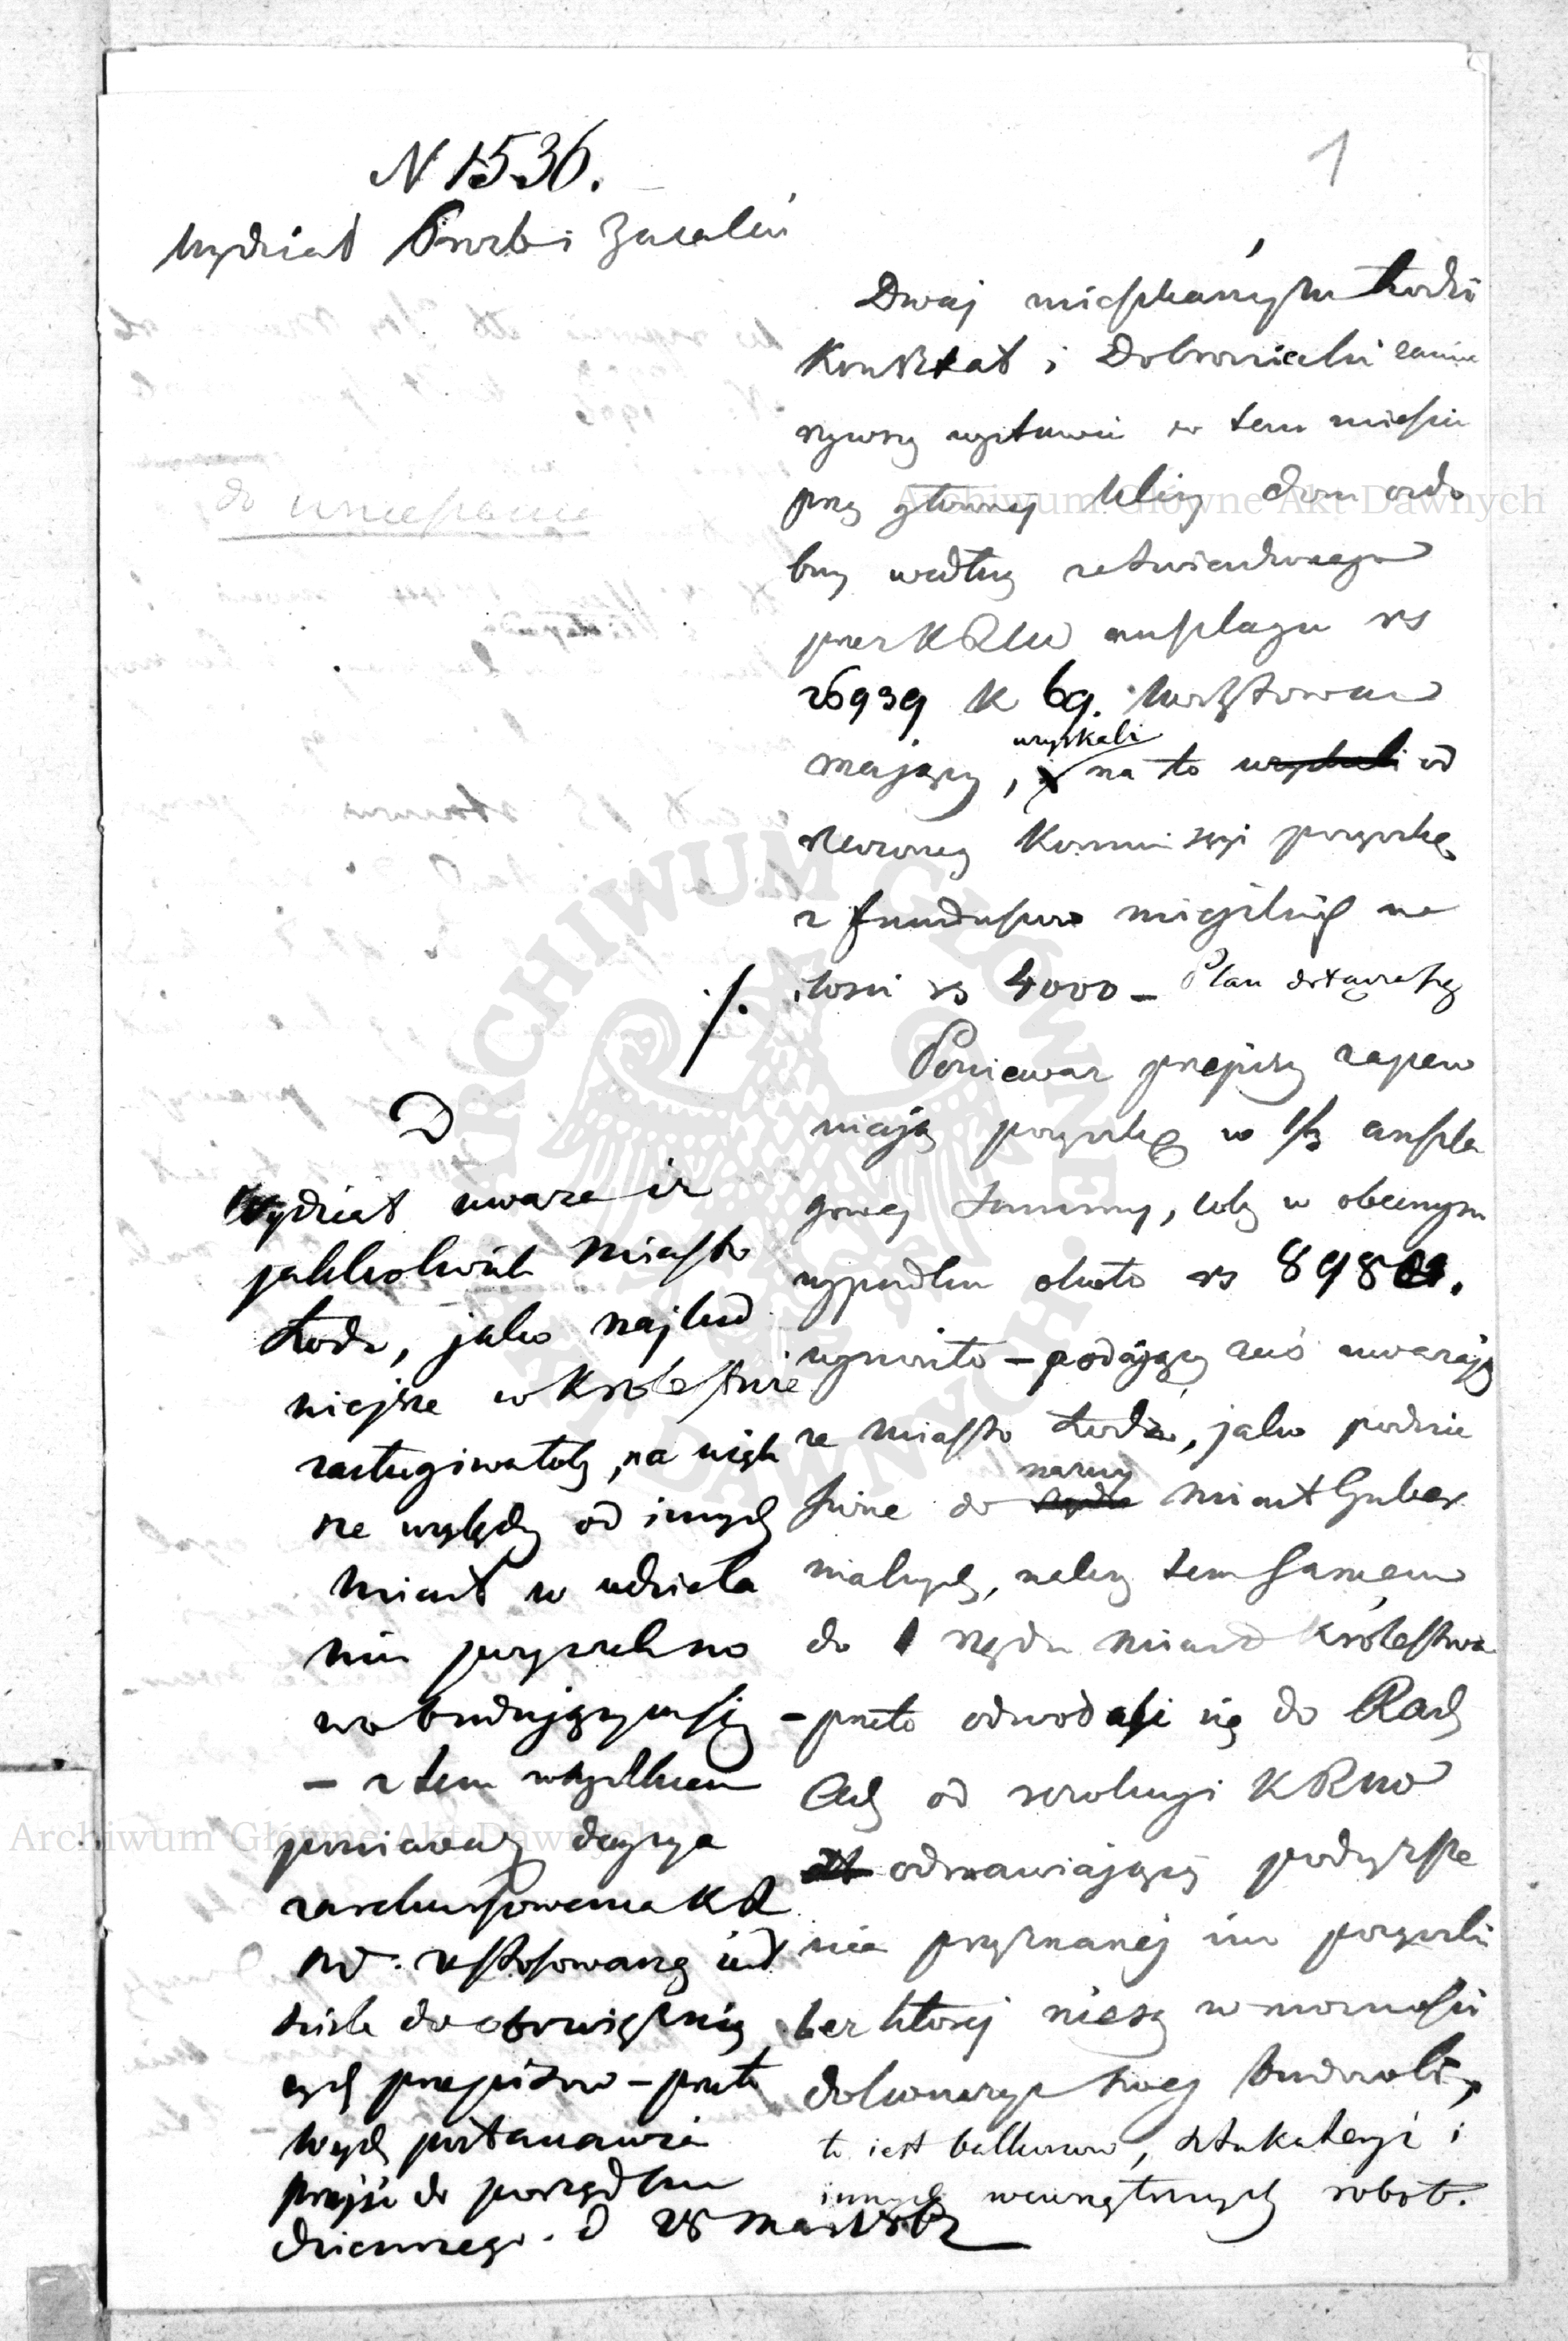 N 1536.
1
Wydział Prosb i Zażaleń
do umieszczenia
Dwaj mieszkańcy m Łodzi
Konstadt i Dobranicki zamie
rzywszy wystawić w tem mieście
przy głównej Ulicy dom ozdo
bny według zatwierdzonego
przez KRSW anszlagu rs
26939 k 69. kosztować
mający, wyskali na to od
rzeczoney Kommissyi pożyczkę
z funduszow miejskich w
ilości rs 4000 – Plan dołącza się
Ponieważ przepisy zapew
niają pożyczkę w 1/3 anszla
gowej Summy, coby w obecnym
wypadku około rs 898
wynosiło – podający zaś uważają
że miasto Łódź, jako podnie
sione do nazwy miast Guber
nialnych, należy tem samem
do 1 rzędu miast Królestwa
– przeto odwołali się do Rady
Adj od rezolucyi KRSW
odmawiającej podwyższe
nia przyznanej im pożyczki
bez której nie są w możności
dokończyć swej budowli,
to jest balkonow, sztukateryi i
innych wewnętrznych robot.
./.
D
Wydział uważa iż
jakkolwiek Miasto
Łódź, jako najlud
niejsze w Królestwie
zasługiwałoby na więk
sze względy od innych
Miast w udziela
niu pożyczek no
wo budującym się
– z tem wszystkiem
ponieważ decyzya
zaskarżona KR
SW. zastosowaną jest
ściśle do obowiązują
cych przepisow – przeto
Wydz postanawia
przejść do porządku
dziennego. D 28 Mar 1862
Archiwum Główne Akt Dawnych
Archiwum Główne Akt Dawnych
ARCHIWUM GŁÓWNE AKT DAWNYCH.